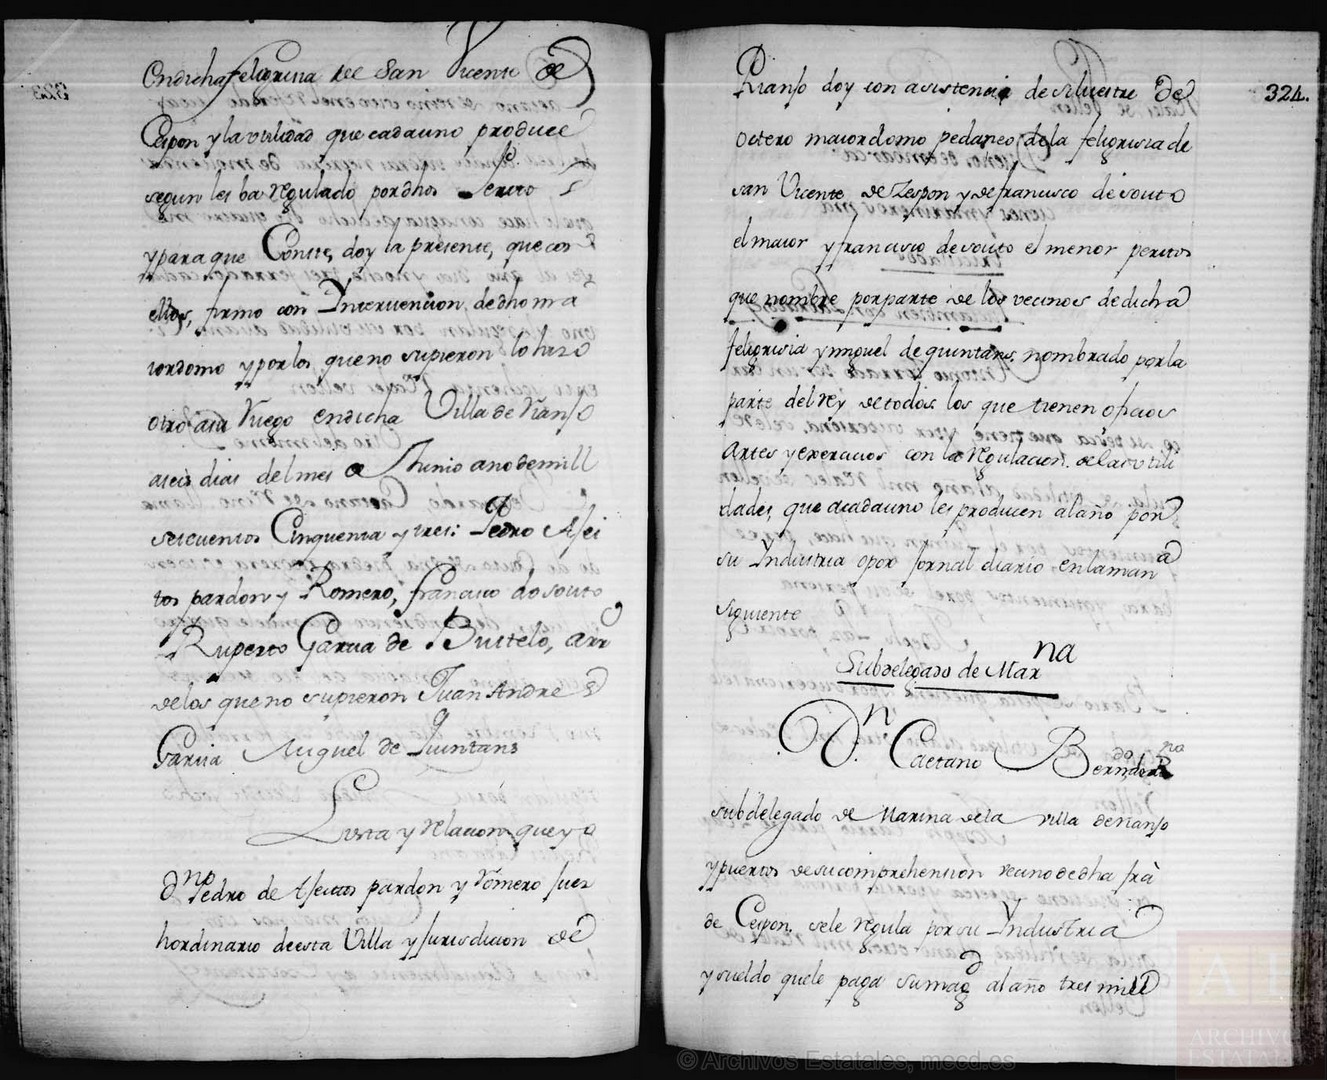 en dicha feligrisia de San Vicente de
Cespon y la utilidad que cada uno produce
segun les ba regulado por dhos Perito s
y para que Conste, doy la presente, que con
ellos, firmo con Yntervencion de dho ma
iordomo y por los que no supieron lo hizo
otro a su Ruego en dicha Villa de Rianjo
a seis dias del mes de Junio ano de mill
setecientos Cinquenta y tres: Pedro Assei
tos pardon y Romero, francisco do souto
Ruperto Garcia de Bustelo, arr
de los que no supieron Juan Andre s
Garcia Miguel de Quintans
Lista y Relacion, que yo
Dn Pedro de Aseitos pardon y Romero Juez
hordinario de esta Villa y Jurisdicion de
324.
Rianjo doy con asistencia de silvestre de
octero maiordomo pedaneo de la feligrisia de
san Vicente de Zespon y de francisco de souto
el maior y francisco de souto el menor peritos
que nombre por parte de los vecinos de dicha
feligrisia y miguel de quintans nombrado por la
parte del rey de todos los que tienen oficios
Artes y exercicios con la regulacion de las utili
dades, que a cada uno les producen al año por
su Yndustria o por Jornal diario, en la mana
siguiente
Subdelegado de Marna
Dn. Caetano Berndo
subdelegado de Marina de la villa de Rianjo
y puertos de su comprehension vecino de dha fra
de Cespon. se le regula por su Yndustria
y sueldo que le paga su magd al año tres mill
© Archivos Estatales, mecd.es
ARCHIVOS
ESTATALES